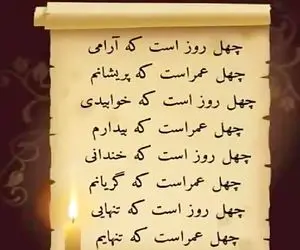 چهل روز است که آرامی
چهل عمراست که پریشانم
چهل روز است که خوابیدی
چهل عمراست که بیدارم
چهل روز است که خندانی
چهل عمراست که گریانم
چهل روز است که تنهایی
چهل عمراست که تنهایم